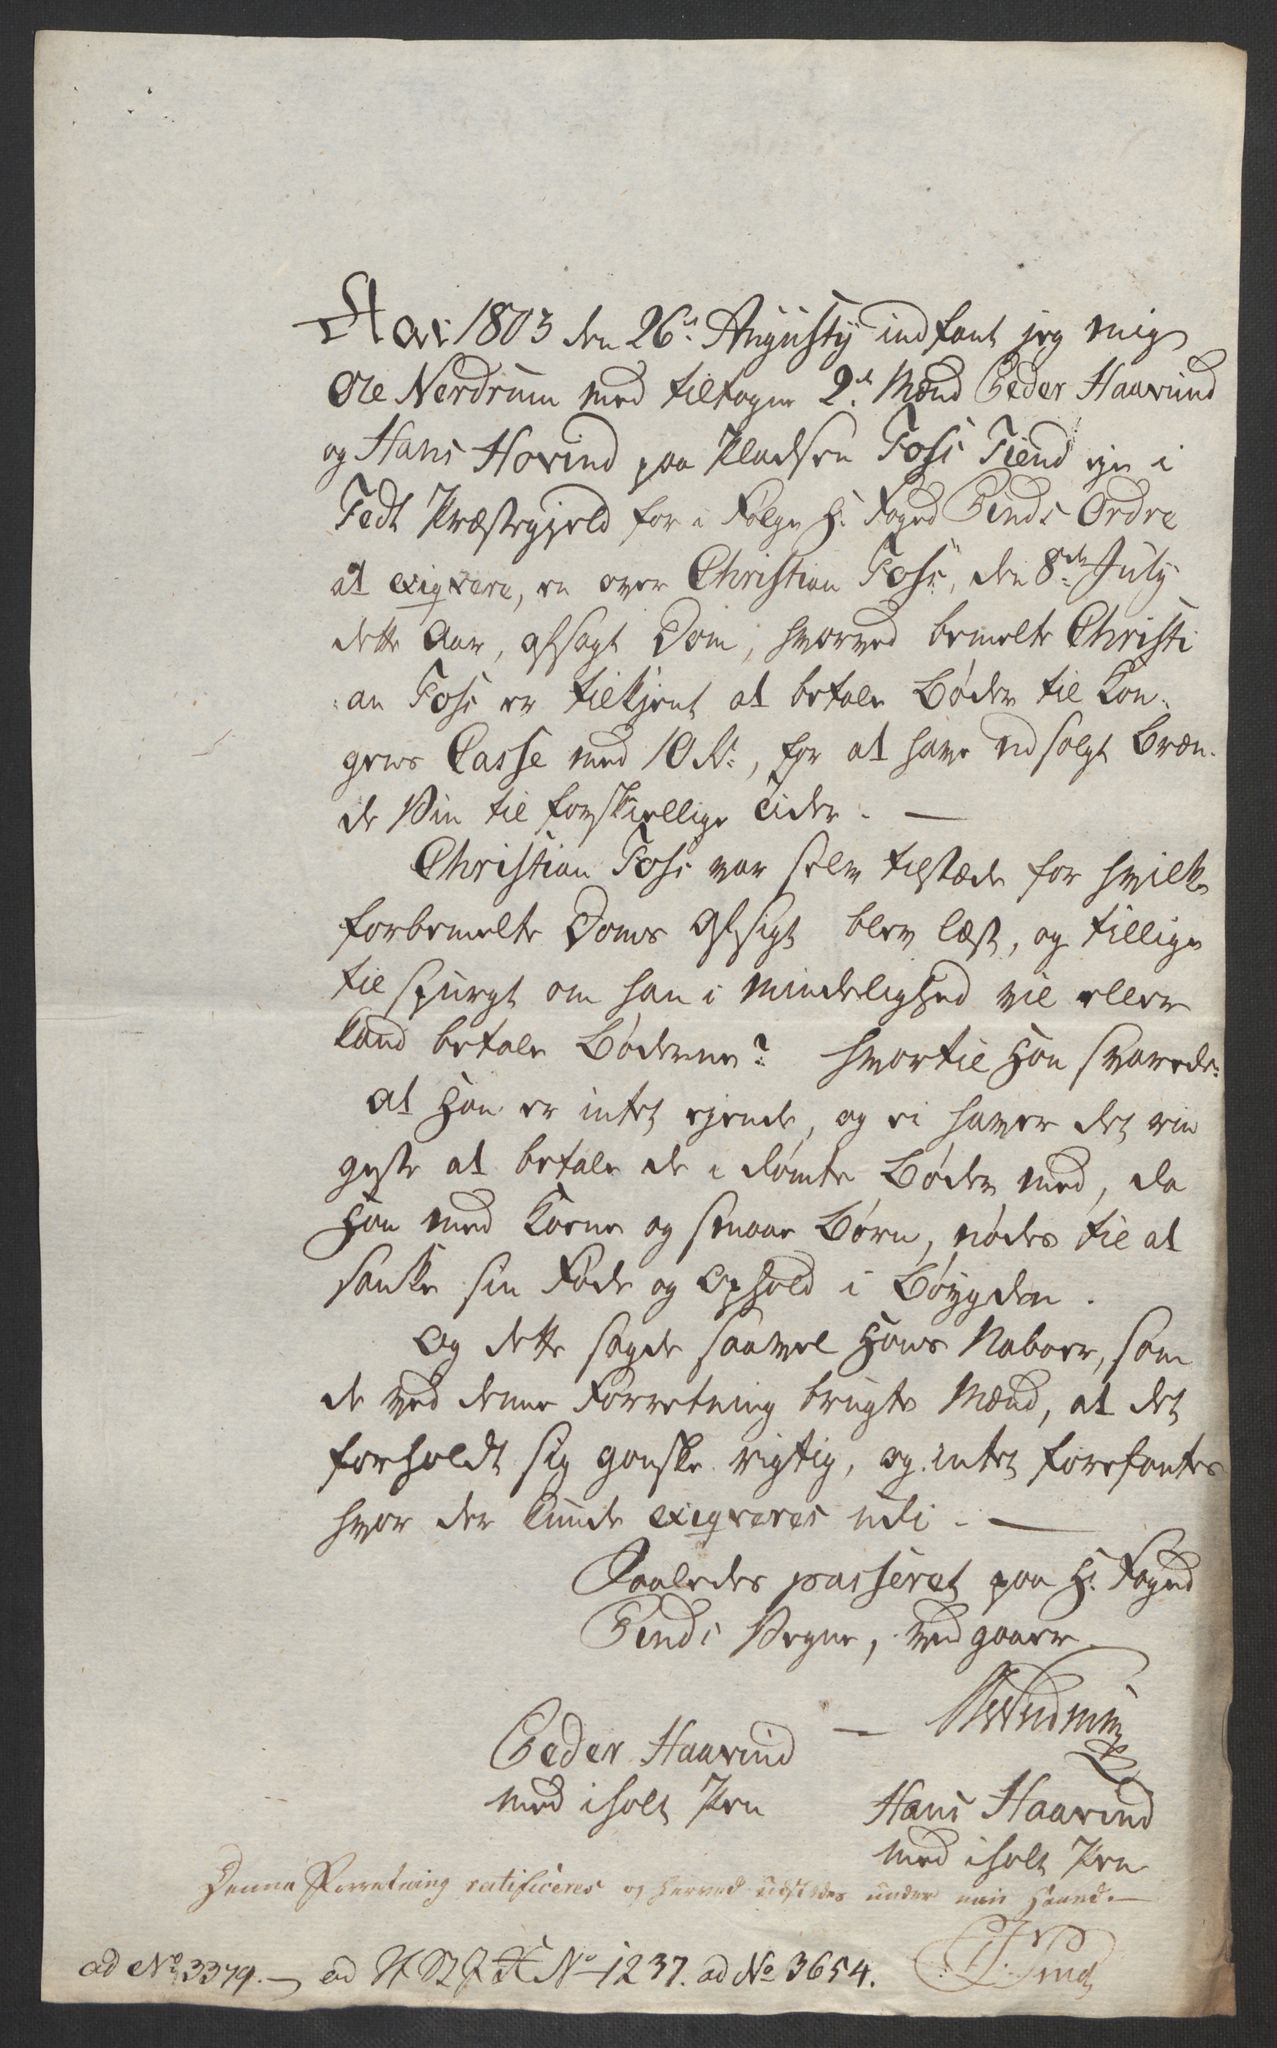 Aar 1803 den 26.de Augusty indfant jeg mig
Ole Nerdrum med tiltagne 2.de Mænd Peder Haavind
og Hans Hovind paa Pladsen Foss Fiend eje i
Fedt Præstegjeld for i Følge H: Foged Pinds Ordre
at exiqvere, en over Christian Foss, den 8.de July
dette Aar, afsagt Dom, hvorved bemelte Christi
:an Foss er tilkjent at betale Bøder til Kon-
gens Casse med 10 Rd:, for at have udsolgt Bræn-
de Viin til forskiellige Tider. —
Christian Foss var selv tilstæde for hvilken
forbemelte Doms Afsigt blev læst, og tillige
til spurgt om han i Mindelighed vil eller
kand betale Bøderne? hvortil Han svarede:
at Han er intet ejende, og ei haver det rin
geste at betale de i dømte Bøder med, da
Han med Kone og smaae Børn, nødes til at
sanke sin Føde og Ophold i Bøygden.
Og dette sagde saavel Hans Naboer, som
de ved denne Forretning brugte Mænd, at det
forholdt sig ganske rigtig, og intet forefantes
hvor der kunde exiqveres udi. —
Saaledes passeret paa H: Foged
Pinds Vegne, vedgaaer
— Nerdrum
Peder Haavind
med iholt Pen
Hans Haavind
med iholt Pen
Denne Forretning ratificeres og herved udstædes under min Haand. —
Pind
ad No 3379. — ad No 1237. ad No 3654.